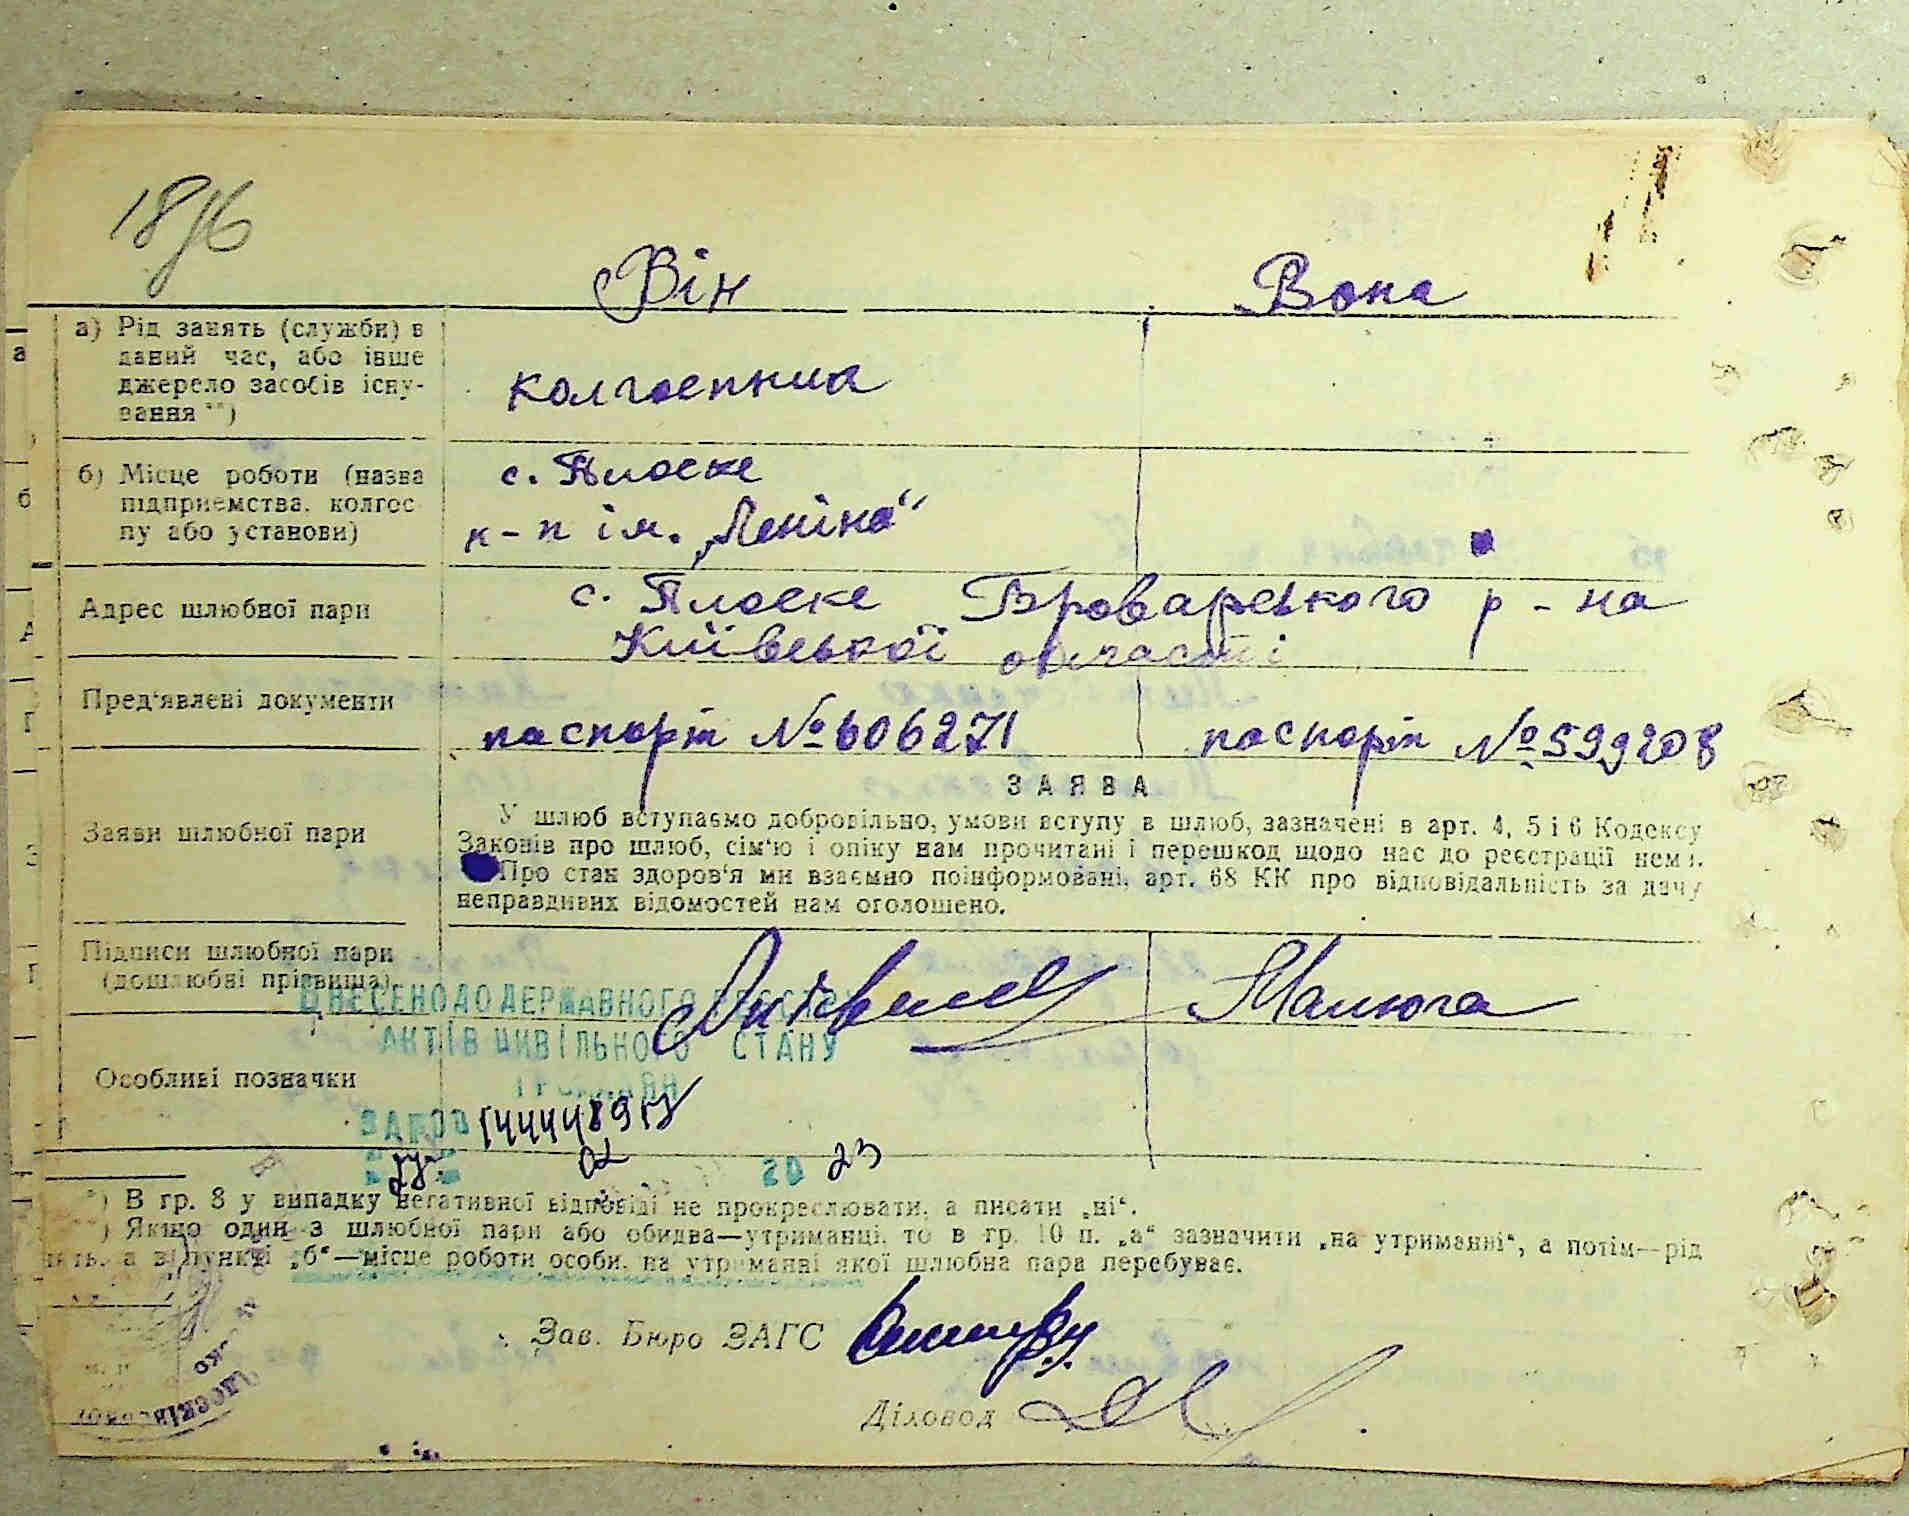 Він Вона
а) Рід занять (служби) в
даний час, або інше
джерело засобів існу-
вання **)
колгоспниця
б) Місце роботи (назва
підприємства, колгос-
пу або установи)
с. Плоске
к-п ім. „Леніна“
Адрес шлюбної пари
с. Плоске Броварського р-на
Київської області
Пред‘явлені документи
паспорт № 606271 паспорт № 599208
Заяви шлюбної пари
ЗАЯВА
У шлюб вступаємо добровільно, умови вступу в шлюб, зазначені в арт. 4, 5 і 6 Кодексу
Законів про шлюб, сім‘ю і опіку нам прочитані і перешкод щодо нас до реєстрації нема.
Про стан здоров‘я ми взаємно поінформовані, арт. 68 КК про відповідальність за дачу
неправдивих відомостей нам оголошено.
Підписи шлюбної пари
(дошлюбні прізвища)
Малюга
ВНЕСЕНО ДО ДЕРЖАВНОГО РЕЄСТРУ
АКТІВ ЦИВІЛЬНОГО СТАНУ
ГРОМАДЯН
Особливі позначки
20 23
*) В гр. 8 у випадку негативної відповіді не прокреслювати, а писати „ні“.
) Якщо один з шлюбної пари або обидва—утриманці, то в гр. 10 п. „а“ зазначити „на утриманні“, а потім—рід
а в пункті „б“—місце роботи особи, на утриманні якої шлюбна пара перебуває.
Зав. Бюро ЗАГС
Діловод